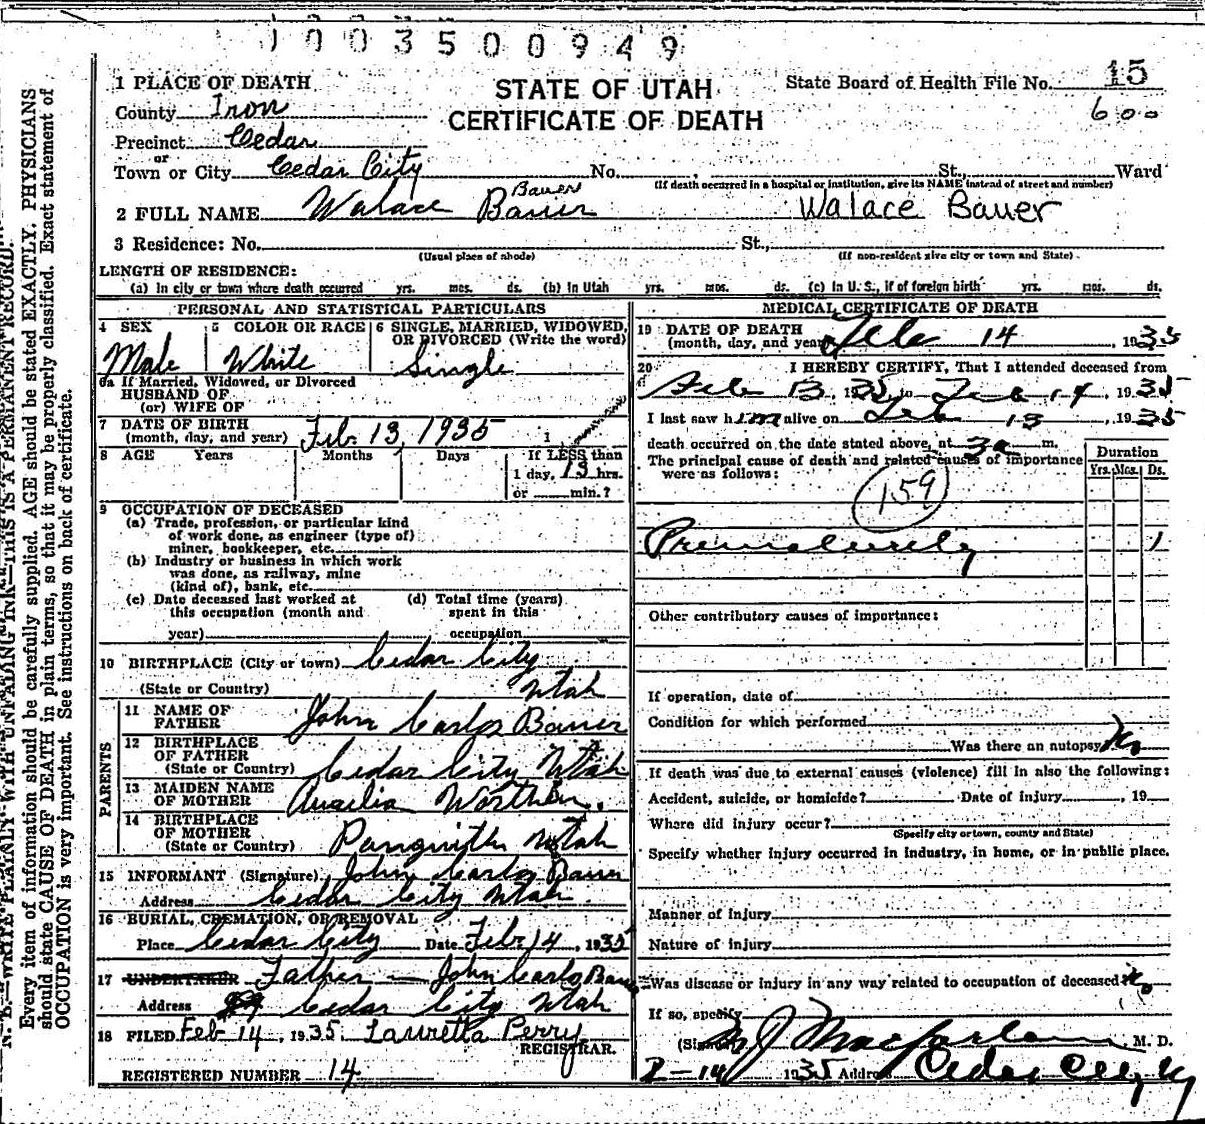 1003500949
1 PLACE OF DEATH
STATE OF UTAH
CERTIFICATE OF DEATH
State Board of Health File No. 15
600
County Iron
Precinct Cedar
or
Town or City Cedar City No. , St., Ward
(If death occurred in a hospital or institution, give its NAME instead of street and number)
Bauer
2 FULL NAME Walace Bauer Walace Bauer
3 Residence: No. St.,
(Usual place of abode) (If non-resident give city or town and State)
LENGTH OF RESIDENCE:
(a) In city or town where death occurred yrs. mos. ds. (b) In Utah yrs. mos. ds. (c) In U. S., if of foreign birth yrs. mos. ds.
PERSONAL AND STATISTICAL PARTICULARS
4 SEX 5 COLOR OR RACE 6 SINGLE, MARRIED, WIDOWED,
OR DIVORCED (Write the word)
Male White Single
6a If Married, Widowed, or Divorced
HUSBAND OF
(or) WIFE OF
7 DATE OF BIRTH
(month, day, and year) Feb. 13, 1935
8 AGE Years Months Days If LESS than
1 day, 13 hrs.
or min.?
9 OCCUPATION OF DECEASED
(a) Trade, profession, or particular kind
of work done, as engineer (type of)
miner, bookkeeper, etc.
(b) Industry or business in which work
was done, as railway, mine
(kind of), bank, etc.
(c) Date deceased last worked at (d) Total time (years)
this occupation (month and spent in this
year) occupation
10 BIRTHPLACE (City or town) Cedar City
(State or Country) Utah
PARENTS
11 NAME OF
FATHER John Carlos Bauer
12 BIRTHPLACE
OF FATHER
(State or Country) Cedar City Utah
13 MAIDEN NAME
OF MOTHER Aurelia Worthen.
14 BIRTHPLACE
OF MOTHER
(State or Country) Panguitch Utah
15 INFORMANT (Signature) John Carlos Bauer
Address Cedar City Utah.
16 BURIAL, CREMATION, OR REMOVAL
Place Cedar City Date Feb 14, 1935
17 UNDERTAKER Father — John Carlos Bauer
Address Cedar City Utah
18 FILED Feb 14, 1935. Lauretta Perry
REGISTRAR.
REGISTERED NUMBER 14
MEDICAL CERTIFICATE OF DEATH
19 DATE OF DEATH
(month, day, and year) Feb 14, 1935
20 I HEREBY CERTIFY, That I attended deceased from
Feb 13, 1935, to Feb 14, 1935
I last saw him alive on Feb 13, 1935
death occurred on the date stated above, at 3a m.
The principal cause of death and related causes of importance
were as follows:
Duration
Yrs. Mos. Ds.
159
Prematurity 1
Other contributory causes of importance:
If operation, date of
Condition for which performed
Was there an autopsy No
If death was due to external causes (violence) fill in also the following:
Accident, suicide, or homicide? Date of injury , 19
Where did injury occur?
(Specify city or town, county and State)
Specify whether injury occurred in industry, in home, or in public place.
Manner of injury
Nature of injury
Was disease or injury in any way related to occupation of deceased No
If so, specify
(Signed) M J Macfarlane, M. D.
2-14 1935 Address Cedar City
N. B.—WRITE PLAINLY WITH UNFADING INK—THIS IS A PERMANENT RECORD.
Every item of information should be carefully supplied. AGE should be stated EXACTLY. PHYSICIANS
should state CAUSE OF DEATH in plain terms, so that it may be properly classified. Exact statement of
OCCUPATION is very important. See instructions on back of certificate.